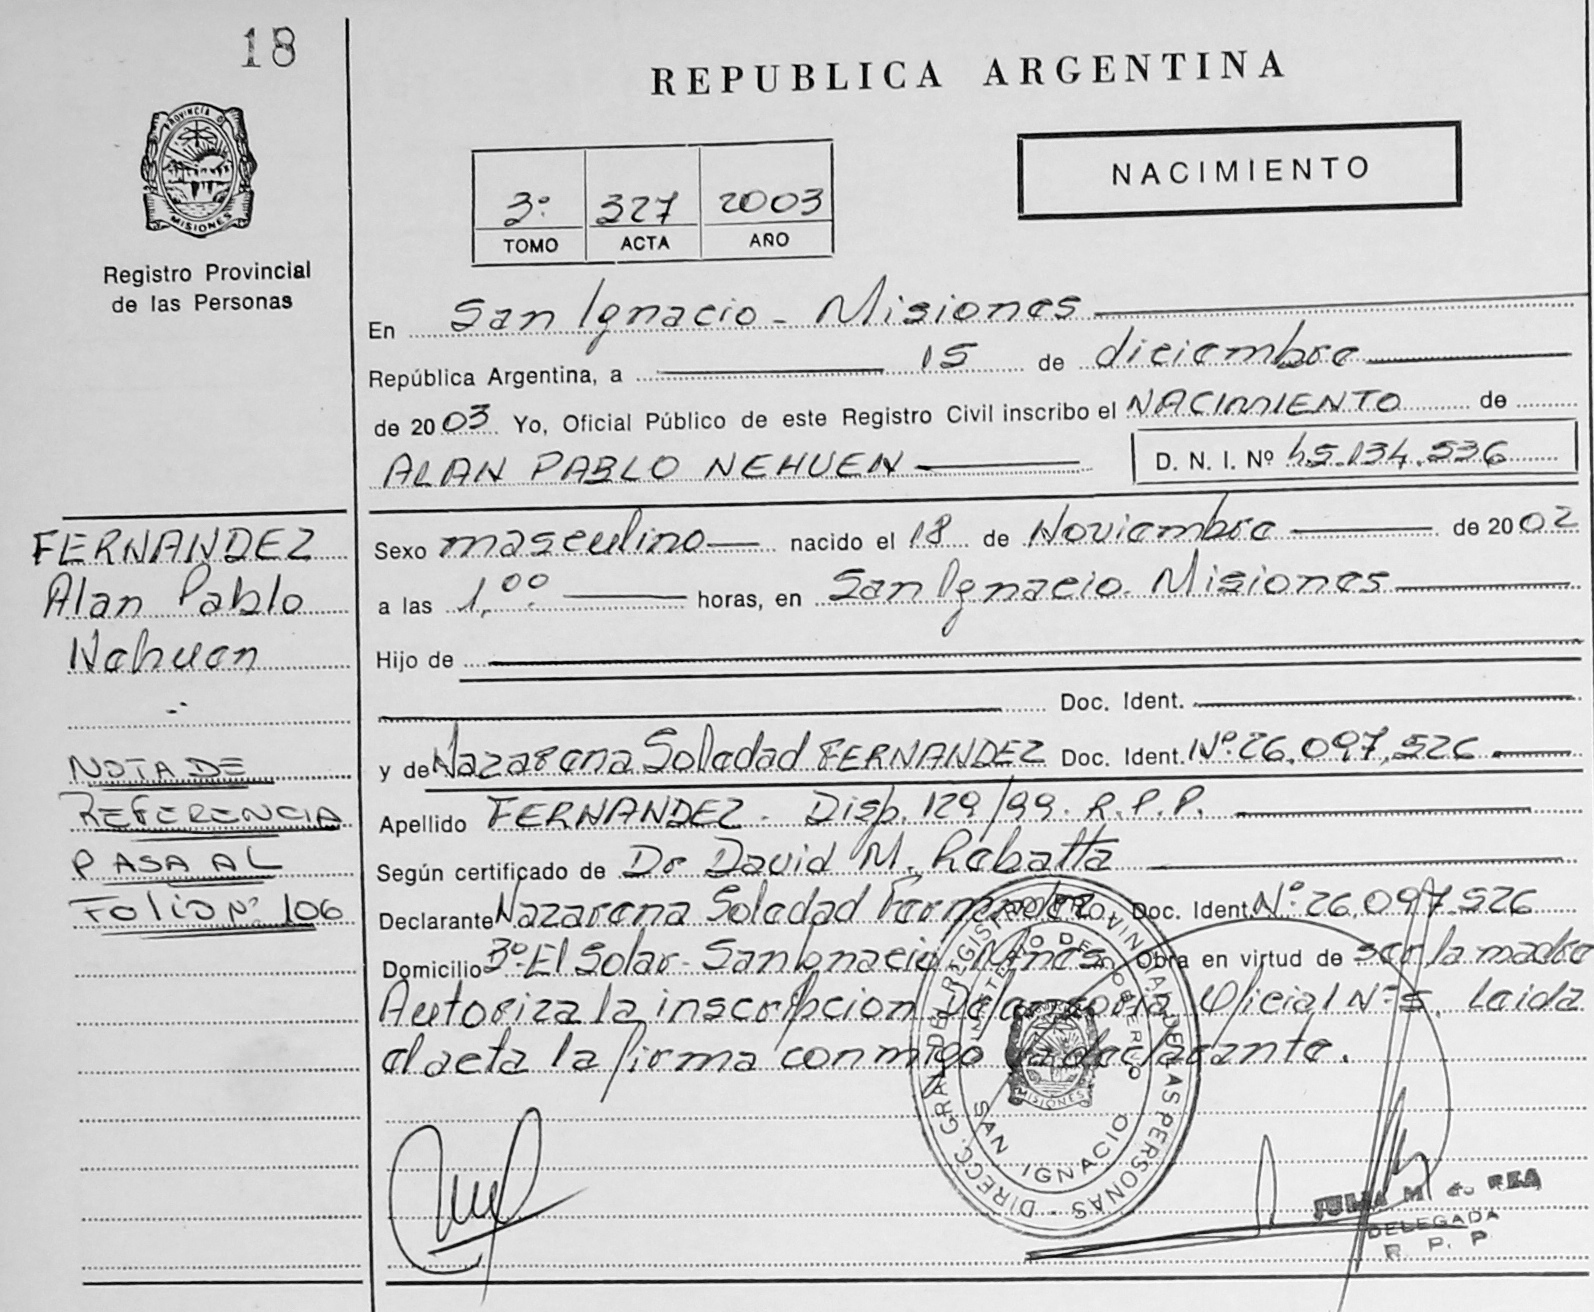 18
REPUBLICA ARGENTINA
PROVINCIA D
MISIONES
NACIMIENTO
3º 327 2003
TOMO ACTA AÑO
Registro Provincial
de las Personas
En San Ignacio - Misiones
República Argentina, a 15 de diciembre
de 2003 Yo, Oficial Público de este Registro Civil inscribo el NACIMIENTO de
ALAN PABLO NEHUEN D. N. I. Nº 45.134.536
FERNANDEZ
Alan Pablo
Nehuen
Sexo masculino nacido el 18 de Noviembre de 2002
a las 1,00 horas, en San Ignacio. Misiones
Hijo de
Doc. Ident.
y de Nazarena Soledad FERNANDEZ Doc. Ident. Nº 26.097.526
NOTA DE
REFERENCIA
PASA AL
FOLIO Nº 106
Apellido FERNANDEZ - Disp. 129/99. R.P.P.
Según certificado de Dr David M. Rabatta
Declarante Nazarena Soledad Fernandez Doc. Ident. Nº 26.097.526
Domicilio Bº El Solar - San Ignacio, Mnes Obra en virtud de ser la madre
Autoriza la inscripcion Defensoria Oficial Nº 5. Leida
el acta la firma conmigo la declarante.
DIRECC. GRAL. DEL REGISTRO PROVINCIAL DE LAS PERSONAS
MINISTERIO DE GOBIERNO
MISIONES
SAN IGNACIO
JULIA M. de REA
DELEGADA
R. P. P